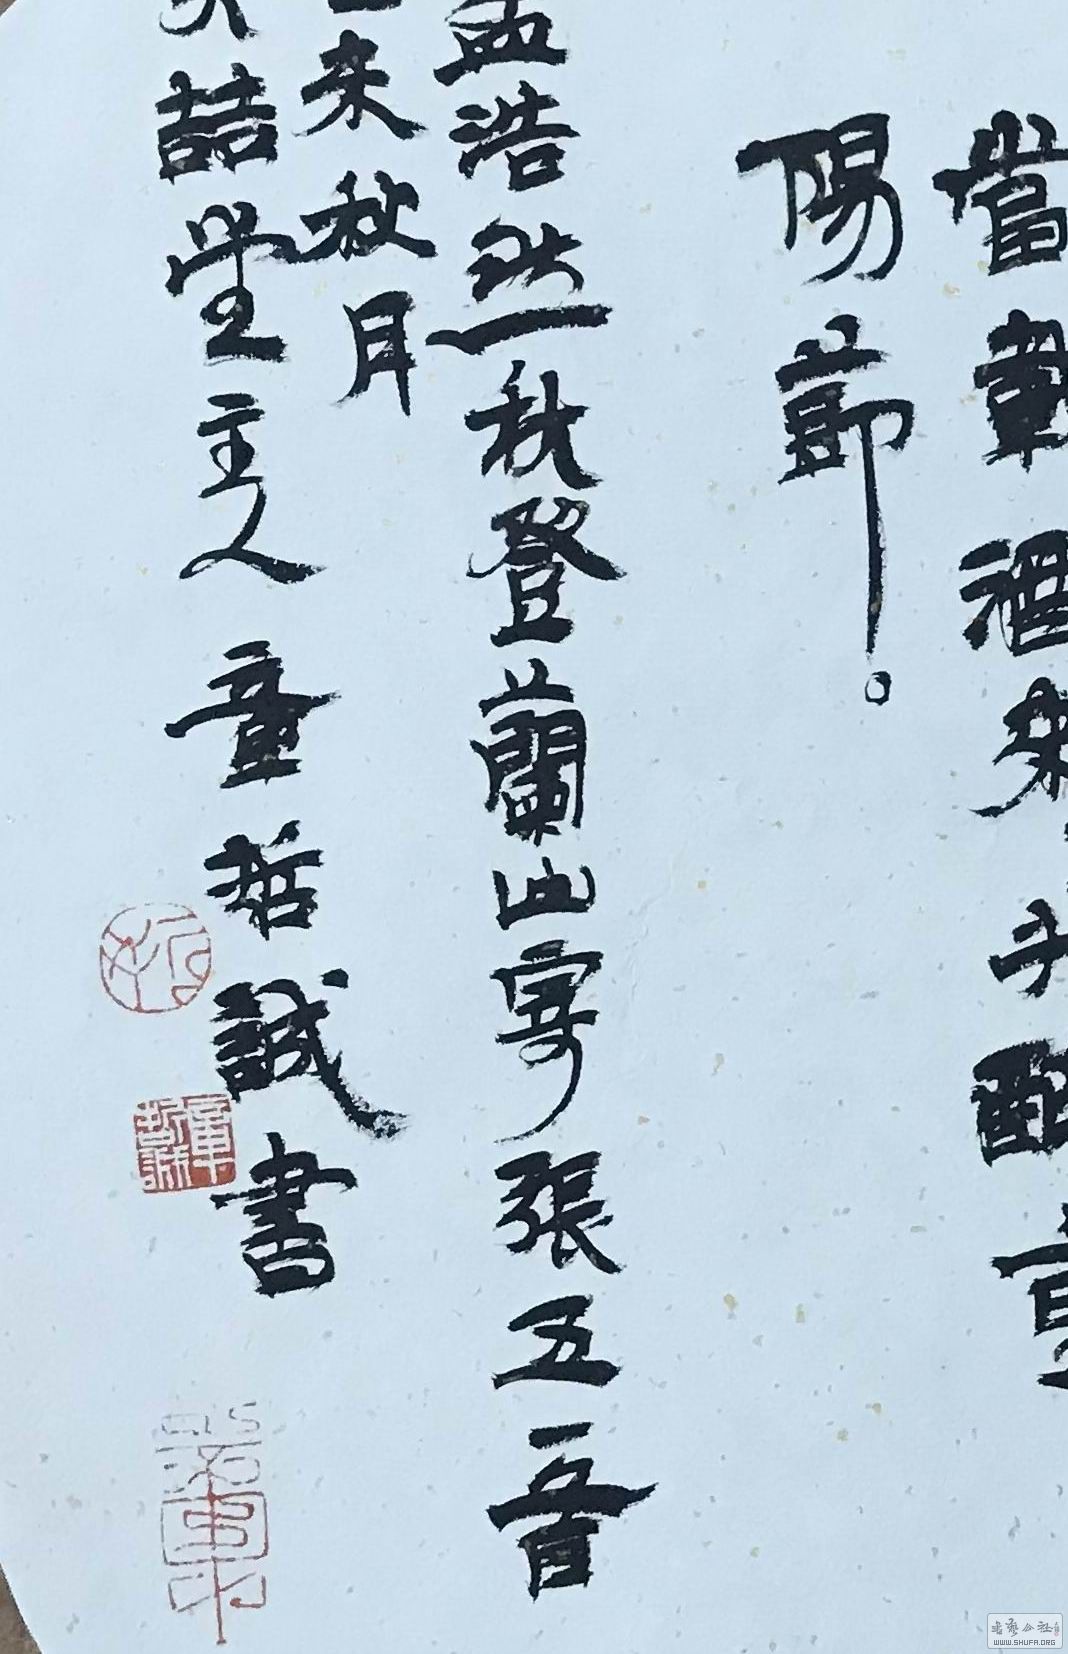 當載酒來醉重
陽節。
孟浩然秋登蘭山寄張五一首
未秋月
喆堂主人童哲誠書
书艺公社
WWW.SHUFA.ORG